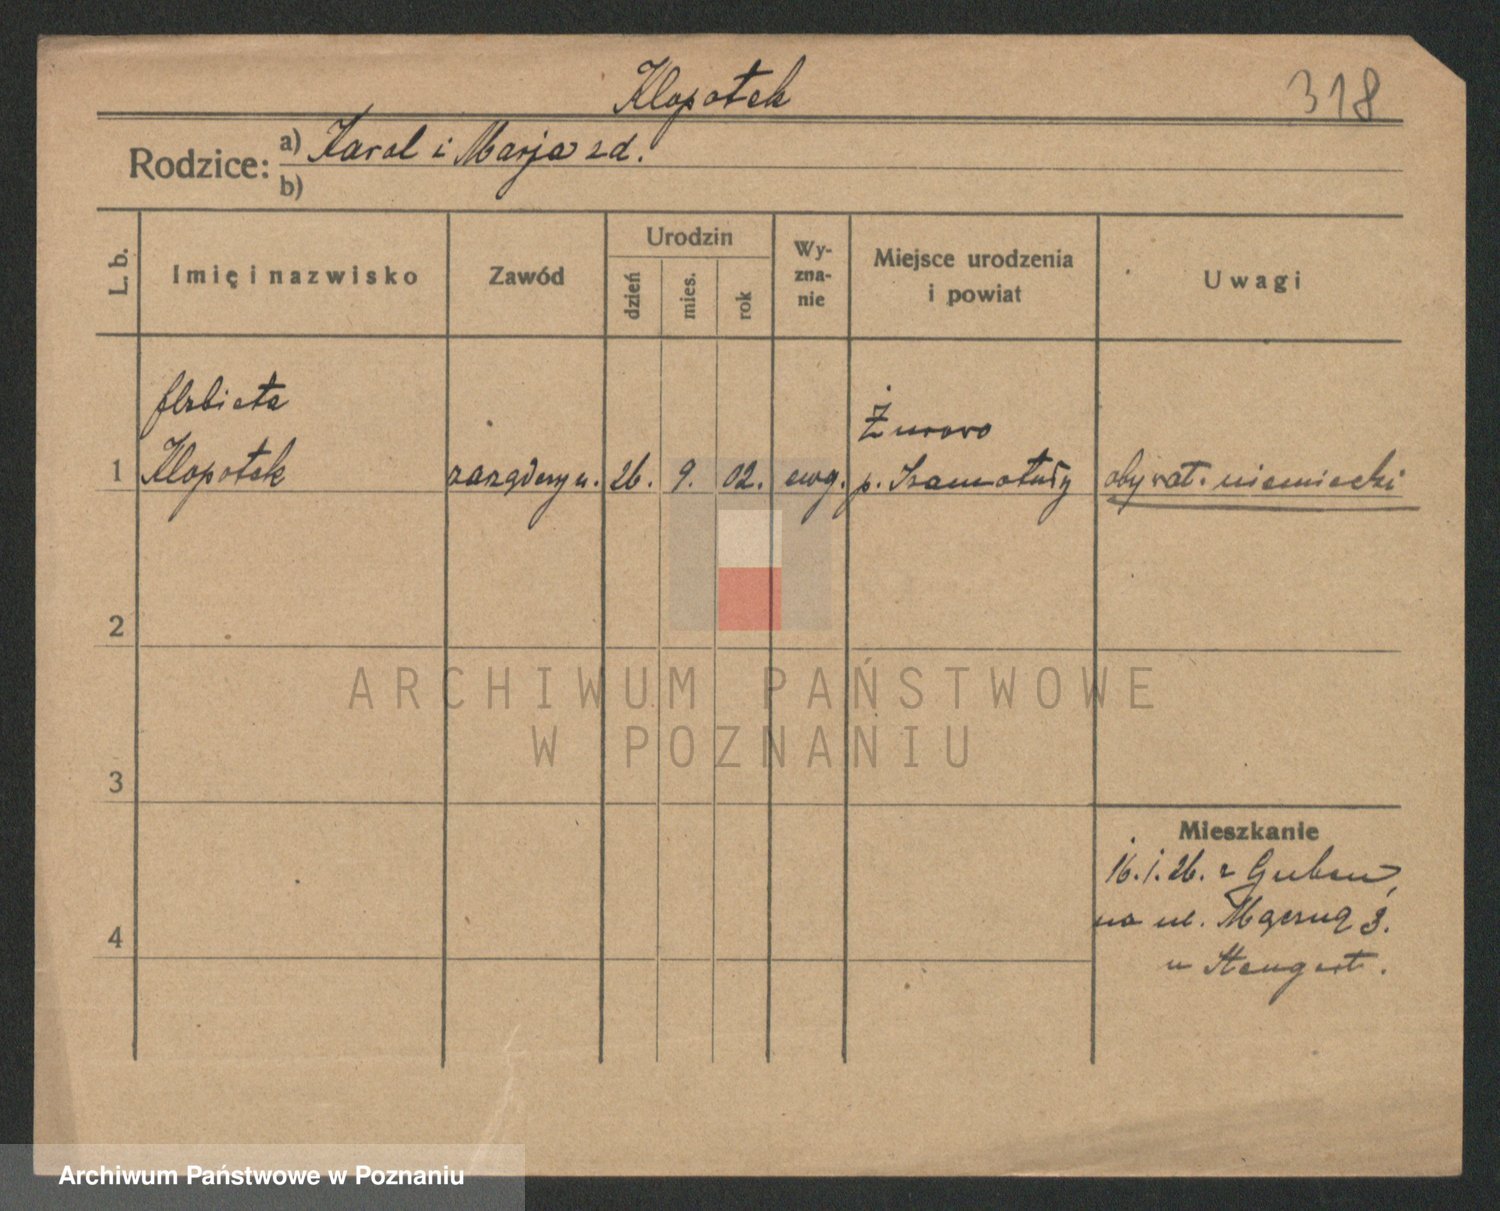 Klopotek
318
Rodzice:
a) Karol i Marja zd.
b)
L. b.
Imię i nazwisko
Zawód
Urodzin
dzień
mies.
rok
Wy-
zna-
nie
Miejsce urodzenia
i powiat
Uwagi
Elzbieta
Klopotek
1
26. 9. 02.
ewg.
p. Szamotuły
obywat. niemiecki
2
3
4
Mieszkanie
16.1.26. z Guben,
na ul. 3.
u
ARCHIWUM PAŃSTWOWE
W POZNANIU
Archiwum Państwowe w Poznaniu